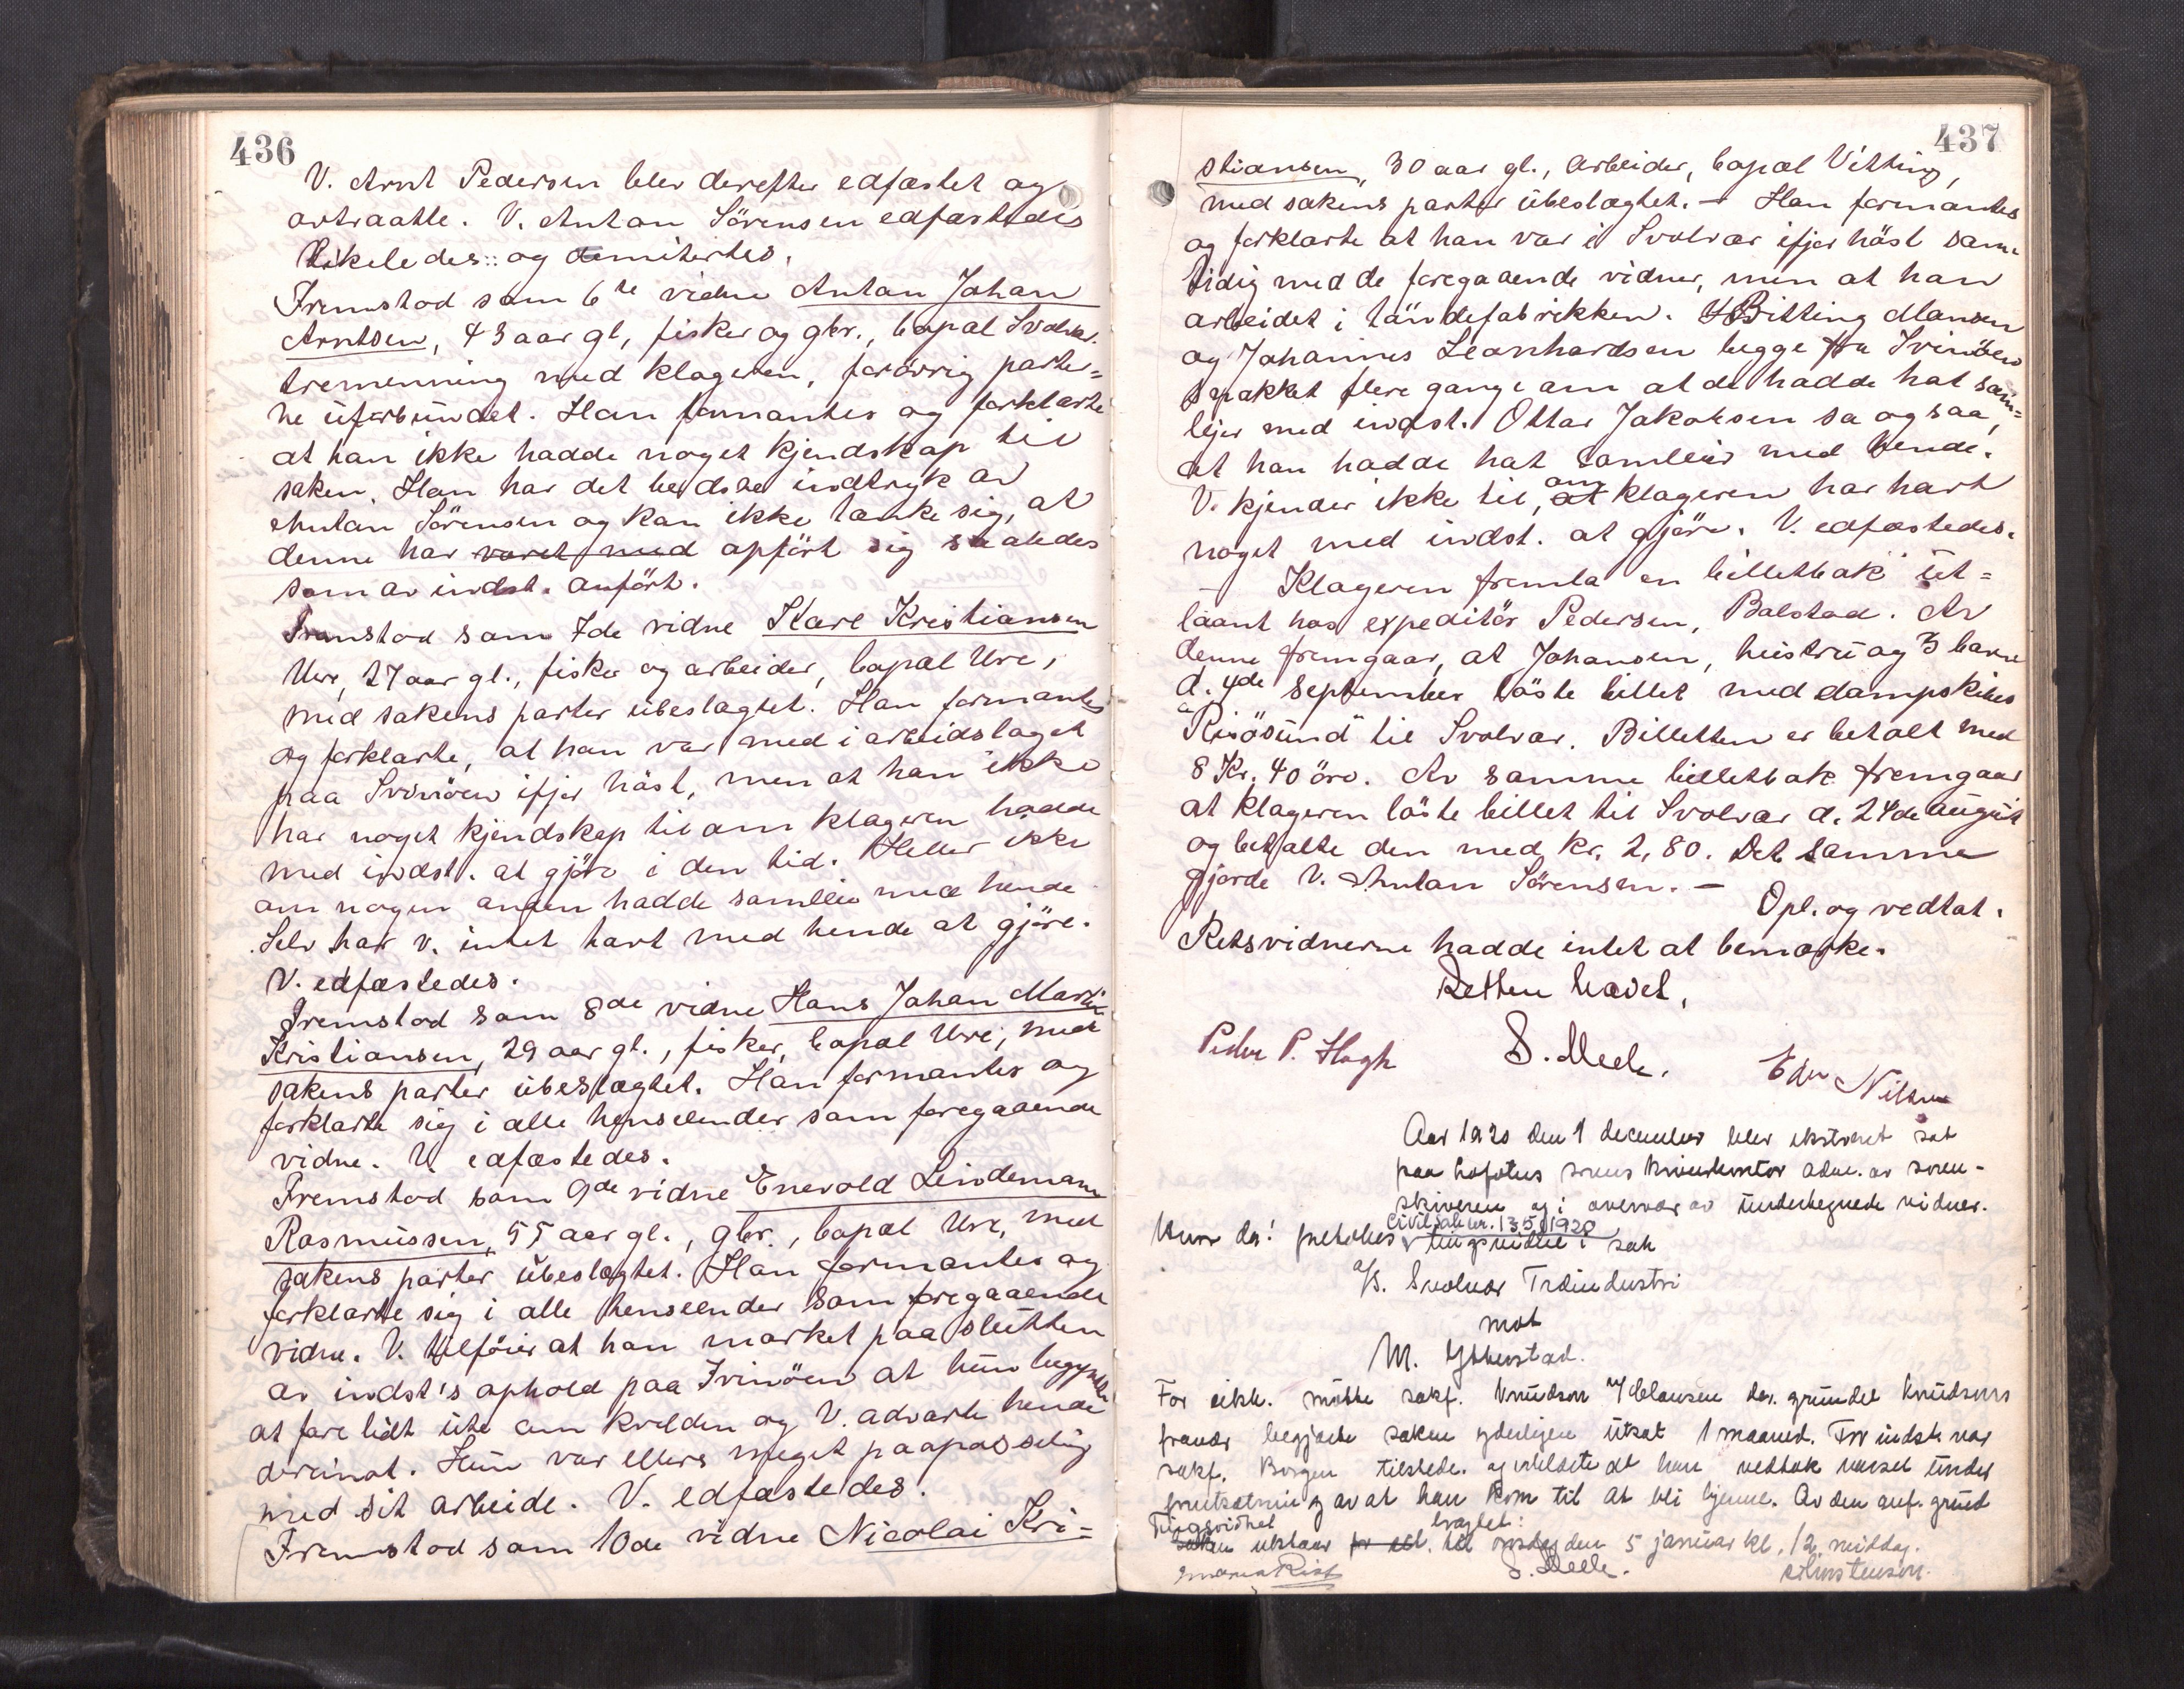 436
V. Arnt Pedersen blev derefter edfæstet og
avtraatte. V. Antan Sörensen edfæstedes
likeledes: og demitertes.
Fremstod som 6te vidne Antan Johan
Arntsen, 43 aar gl., fisker og gbr., bopæl Svolvær.
tremenning med klageren, forövrig parter=
ne uforbundet. Han formantes og forklarte
at han ikke hadde noget kjendskap til
saken. Han har det bedste indtryk av
Antan Sörensen og kan ikke tænke sig, at
denne har været med opfört sig saaledes
som av indst. anfört.
Fremstod som 7de vidne Karl Kristiansen
Ure, 27 aar gl., fisker og arbeider, bopæl Ure,
med sakens parter ubeslægtet. Han formantes
og forklarte, at han var med i arbeidslaget
paa Svinöen ifjor höst, men at han ikke
har noget kjendskap til om klageren hadde
med indst. at gjöre i den tid. Heller ikke
om nogen anden hadde samleie med hende
Selv har V. intet havt med hende at gjöre.
V. edfæstedes.
Fremstod som 8de vidne Hans Johan Martin
Kristiansen, 29 aar gl., fisker, bopæl Ure, med
sakens parter ubeslægtet. Han formantes og
forklarte sig i alle henseender som foregaaende
vidne. V. edfæstedes.
Fremstod som 9de vidne Enevold Lindemann
Rasmussen, 55 aar gl., gbr., bopæl Ure, med
sakens parter ubeslægtet. Han formantes og
forklarte sig i alle henseender som foregaaende
vidne. V. tilföier at han mærket paa slutten
av indst's ophold paa Svinöen at hun begynte
at fare lidt ute om kvelden og V. advarte hende
derimot. Hun var ellers meget paapasselig
med sit arbeide. V. edfæstedes.
Fremstod som 10de vidne Nicolai Kri=
437
stiansen, 30 aar gl., arbeider, bopæl Vitting,
med sakens parter ubeslægtet. - Han formantes
og forklarte at han var i Svolvær ifjor höst sam-
tidig med de foregaaende vidner, men at han
arbeidet i töndefabrikken. Bitting Mansen
og Johannes Leonhardsen begge fra Svinöen
snakket flere gange om at de hadde hat sam=
leje med indst. Ottar Jakobsen sa ogsaa,
at han hadde hat samleie med hende.
V. kjender ikke til, at om klageren har havt
noget med indst. at gjöre. V. edfæstedes.
Klageren fremla en billetbok ut=
laant hos expeditör Pedersen, Balstad. Av
denne fremgaar, at Johansen, hustru og 3 barn
d. 4de september löste billet med dampskibet
"Risösund" til Svolvær. Billetten er betalt med
8 Kr. 40 öre. Av samme billetbok fremgaar
at klageren löste billet til Svolvær d. 24de august
og betalte den med kr. 2,80. Det samme
gjorde V. Antan Sörensen. -
Opl. og vedtat.
Retsvidnerne hadde intet at bemærke.
Retten hævet.
Peder P. Hagh S. Meele. Edv Nilsen
Aar 1920 den 1 december blev ekstraret sat
paa Lofotens sorenskriverkontor adm. av soren-
skriveren og i overvær av undertegnede vidner.
Civilsak nr. 135/1920
Hvor da: foretokes tingsvidne i sak
A/S. Svolvær Træindustri
mot
M. Ytterstad.
For citk. mötte sakf. Knudson v/ Clausen der grundet Knudsons
fravær begjærte saken yderligere utsat 1 maaned. For indst. var
sakf. Borgen tilstede og meldte at han vedtok varsel under
forutsætning av at han kom til at bli hjemme. Av den anf. grund
Tingsvidnet bragtet:
saken utstaar for est. til onsdag den 5 januar kl. 12 middag.
S. Meele.